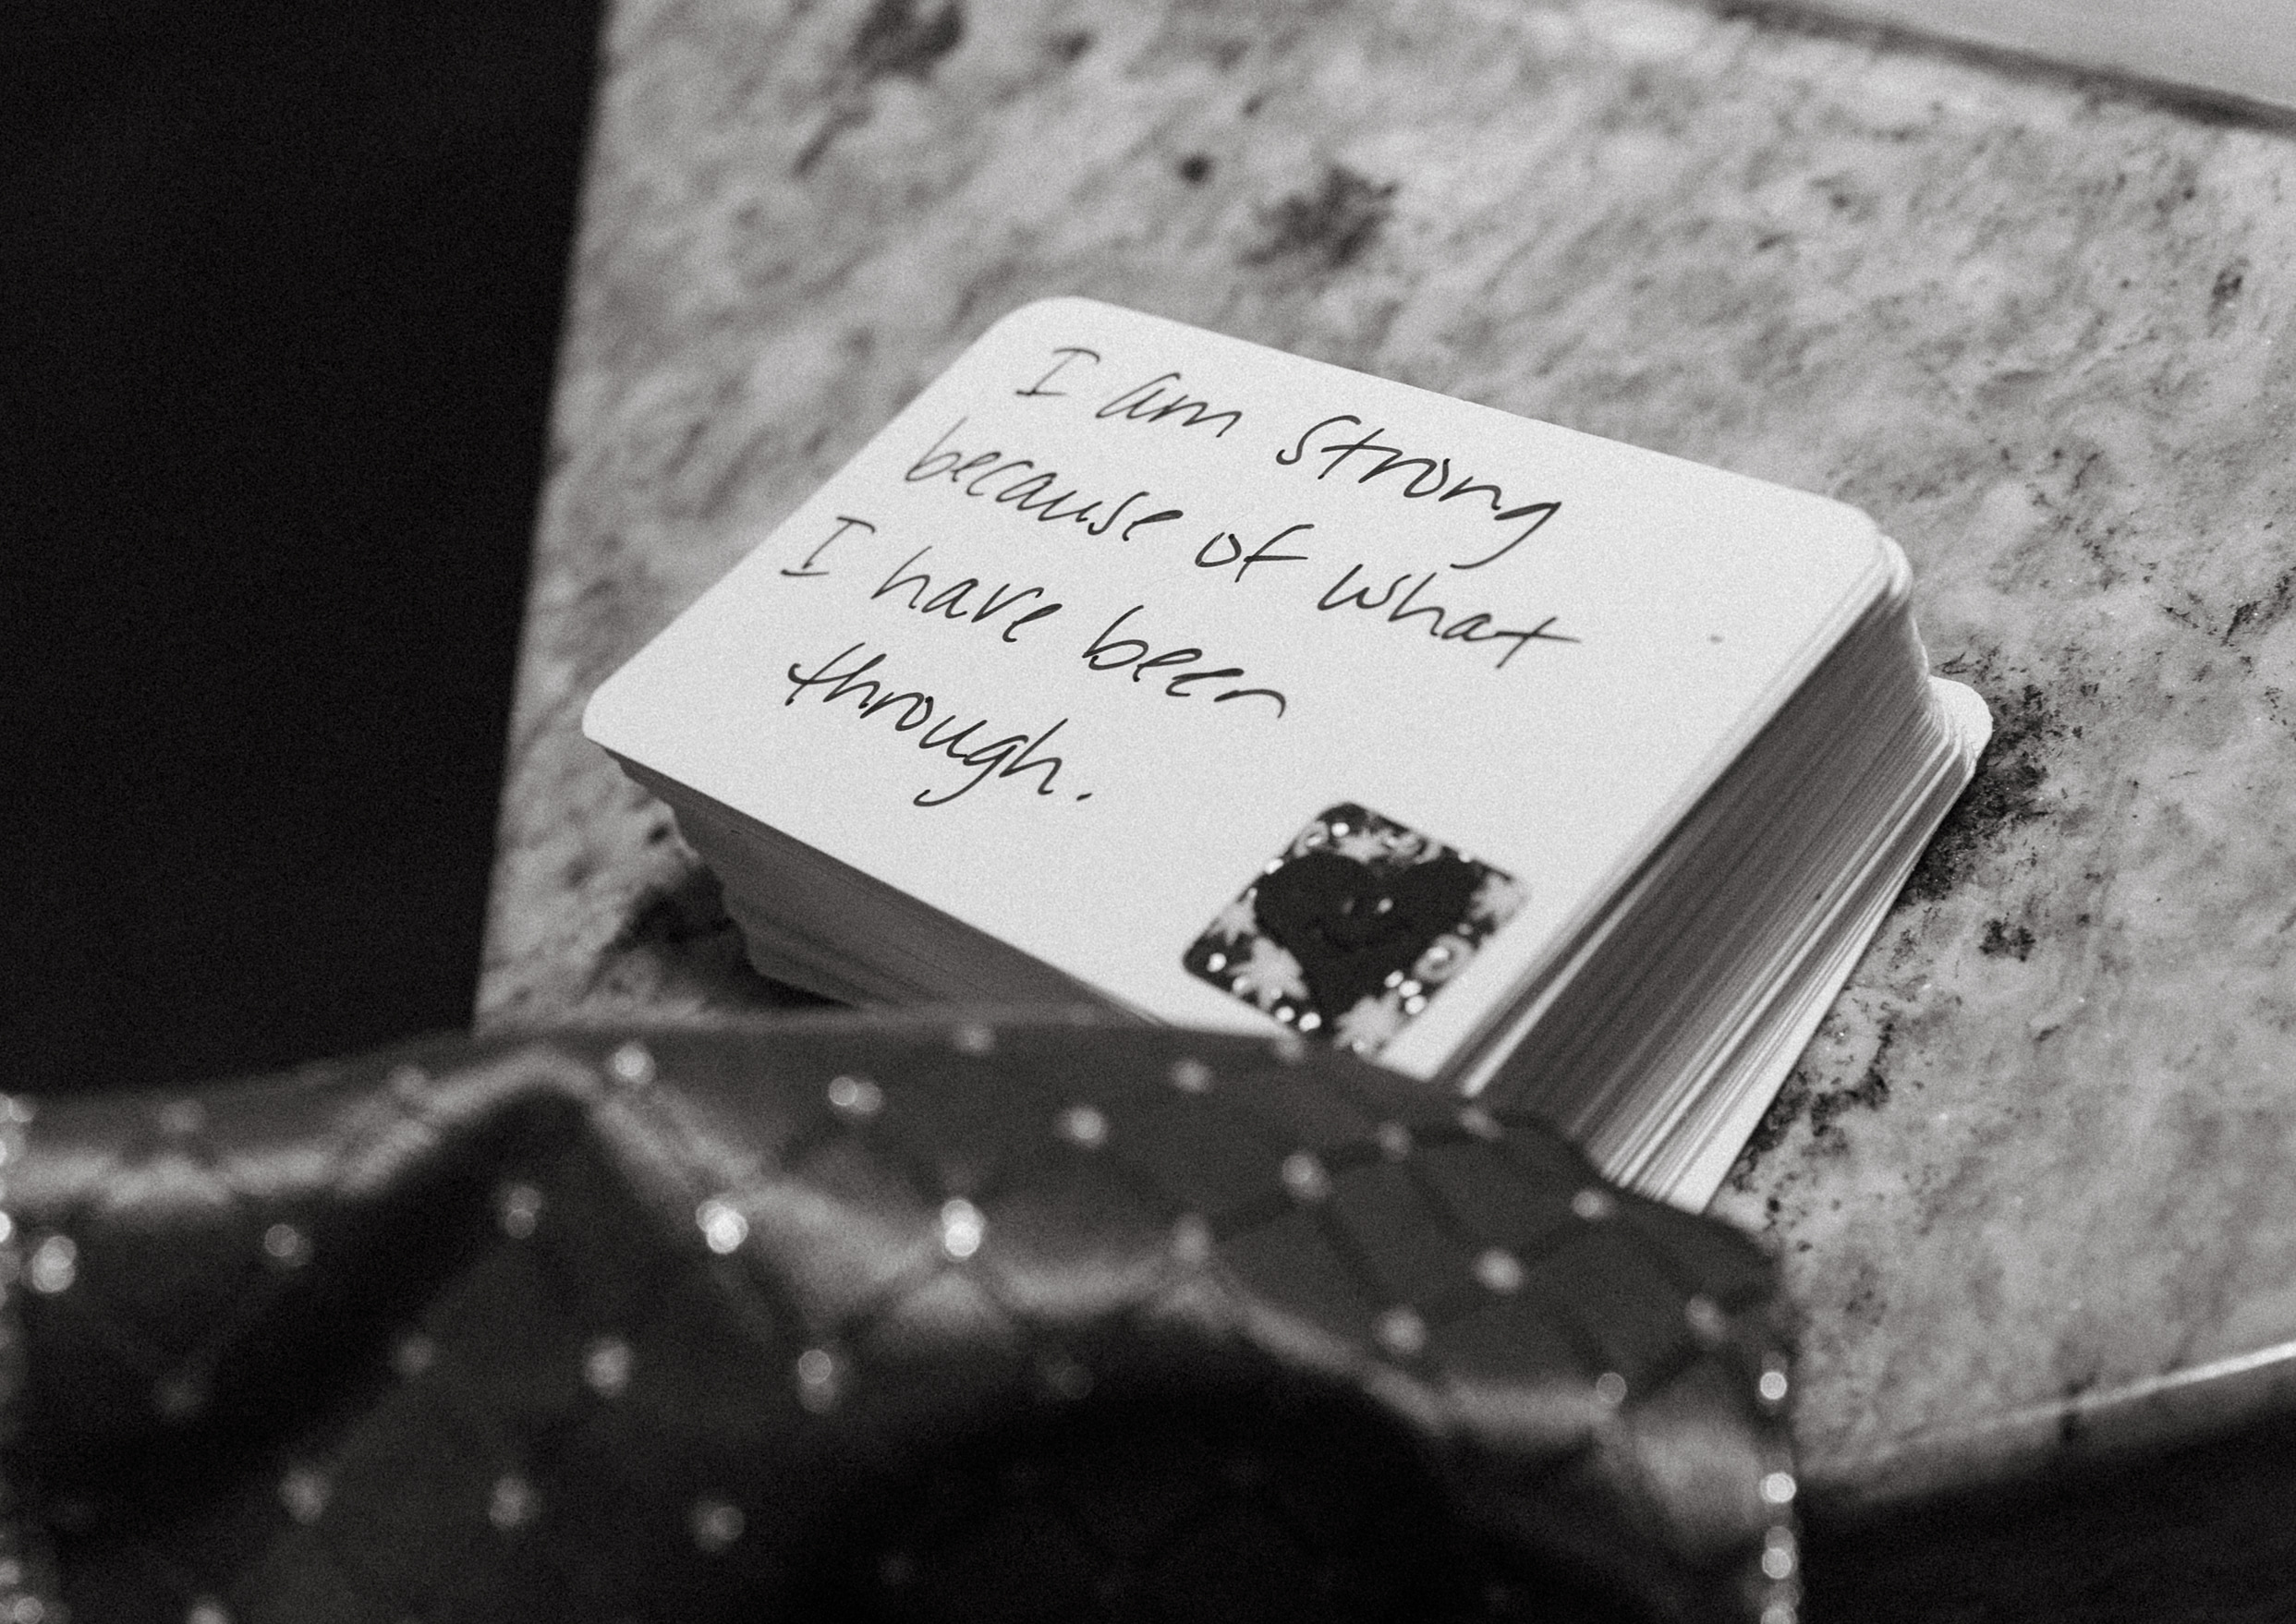 I am strong
because of what
I have been
through.